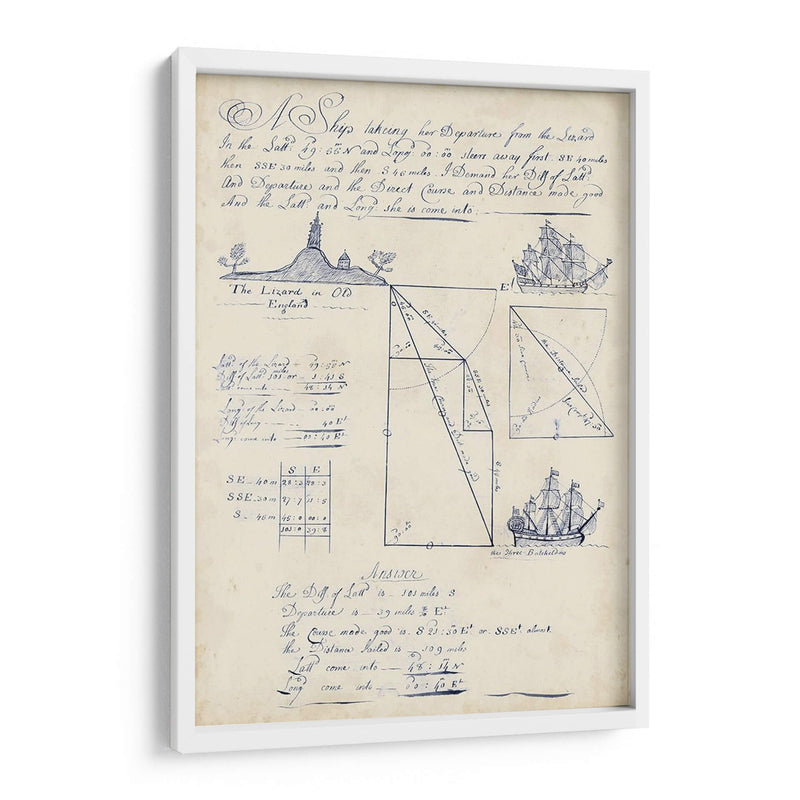 A Ship takeing her Departure from the Lizard
In the Latt: 49:55 N and Long: 00:00 steers away first SE 40 miles
then SSE 30 miles and then S 46 miles. I Demand her Diff of Latt:
And Departure and the Direct Course and Distance made good
And the Latt: and Long: she is come into;
The Lizard in Old
England
E
Latt: of the Lizard 49:55 N
Diff of Latt: 101 miles or 1:41 S
come into 48:14 N
Long: of the Lizard 00:00
Diff of Long 40 Et
Long: come into 00:40 Et
SE 40 miles
SSE 30 miles
S 46 miles
The true Course and Dist made good
S E
SE 40 m 28:3 28:3
SSE 30 m 27:7 11:5
S 46 m 00:0
101:0 39:8
the Three Batcheldors
Answer
The Diff of Latt: is 101 miles S
Departure is 39 miles Et
The Course made good is S 21:30 Et or SSEt almost
the Distance Sailed is 109 miles
Latt come into 48:14 N
Long come into 00:40 Et